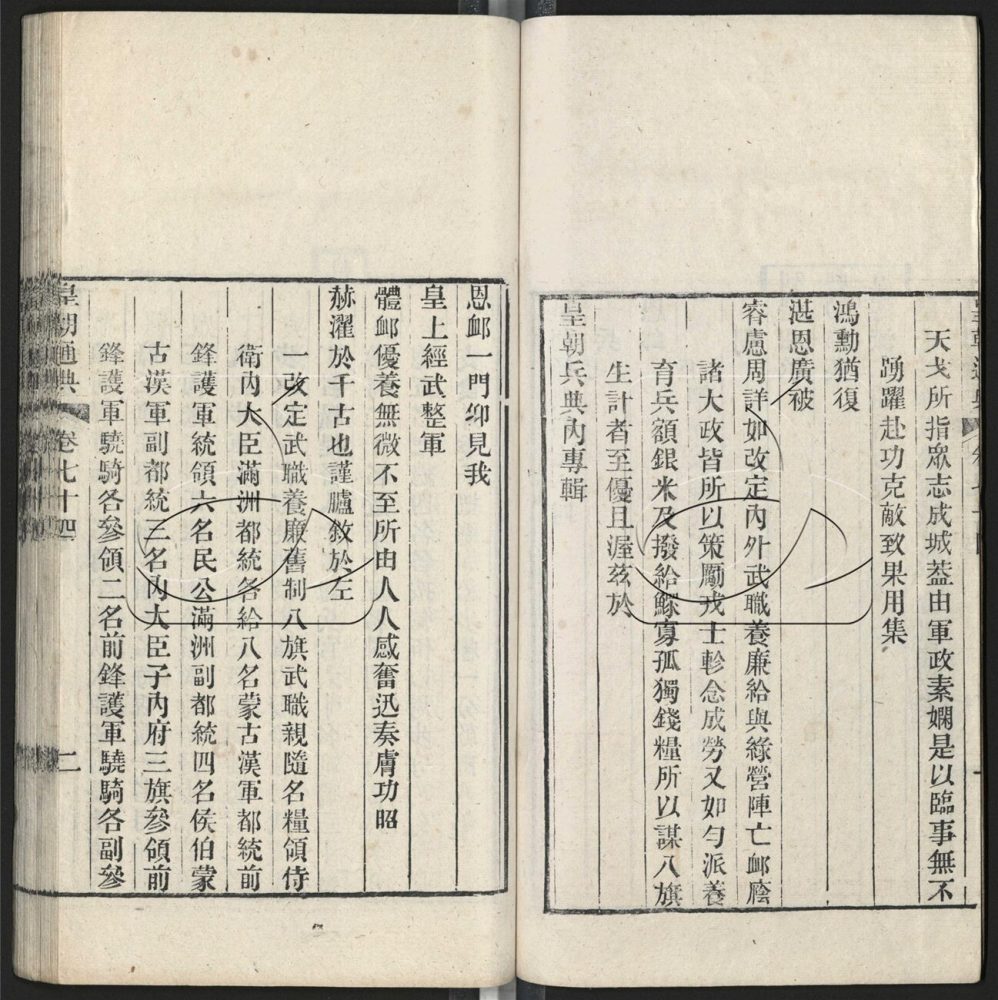 天戈所指眾志成城葢由軍政素嫻是以臨事無不
踴躍赴功克敵致果用集
鴻勳猶復
湛恩廣被
睿慮周詳如改定內外武職養廉給與綠營陣亡衈廕
諸大政皆所以策勵戎士軫念成勞又如勻派養
育兵額銀米及撥給鰥寡孤獨錢糧所以謀八旗
生計者至優且渥茲於
皇朝兵典內專輯
恩衈一門仰見我
皇上經武整軍
體衈優養無微不至所由人人感奮迅奏膚功昭
赫濯於千古也謹臚敘於左
一改定武職養廉舊制八旗武職親隨名糧領侍
衛內大臣滿洲都統各給八名蒙古漢軍都統前
鋒護軍統領六名民公滿洲副都統四名侯伯蒙
古漢軍副都統三名內大臣子內府三旗參領前
鋒護軍驍騎各參領二名前鋒護軍驍騎各副參
皇朝通典 卷七十四 二